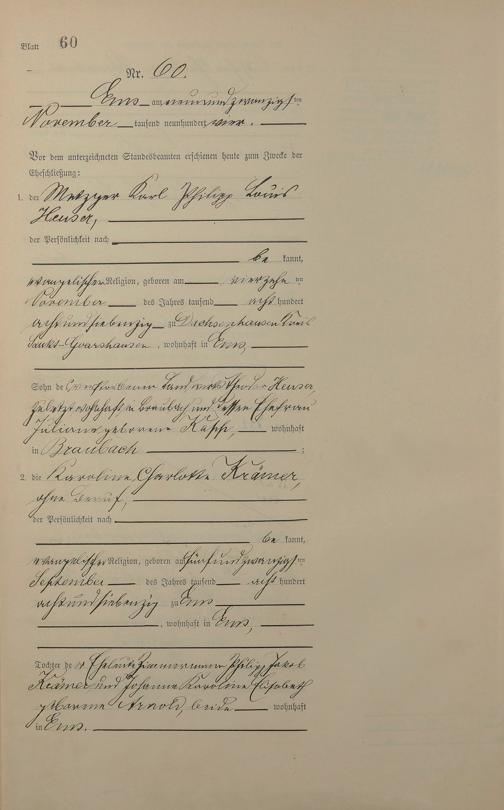 Blatt 60
Nr. 60.
Ems am neunundzwanzigsten
November tausend neunhundert vier.
Vor dem unterzeichneten Standesbeamten erschienen heute zum Zwecke der
Eheschließung:
1. der Metzger Karl Philipp Louis
Heuser,
der Persönlichkeit nach
be kannt,
evangelischer Religion, geboren am vierzehnten
November des Jahres tausend acht hundert
achtundsiebenzig zu Dachsenhausen Kreis
Sankt-Goarshausen, wohnhaft in Ems,
Sohn des verstorbenen Landwirts Theodor Heuser,
zuletzt wohnhaft in Braubach und dessen Ehefrau
Juliane geborene wohnhaft
in Braubach ;
2. die Karoline Charlotte Krämer,
ohne Beruf,
der Persönlichkeit nach
be kannt,
evangelischer Religion, geboren am fünfundzwanzigsten
September des Jahres tausend acht hundert
achtundsiebenzig zu Ems
, wohnhaft in Ems,
Tochter der Eheleute Zimmermann Philipp Jakob
Krämer und Johanne Karoline Elisabeth
geborene Arnold, beide wohnhaft
in Ems.